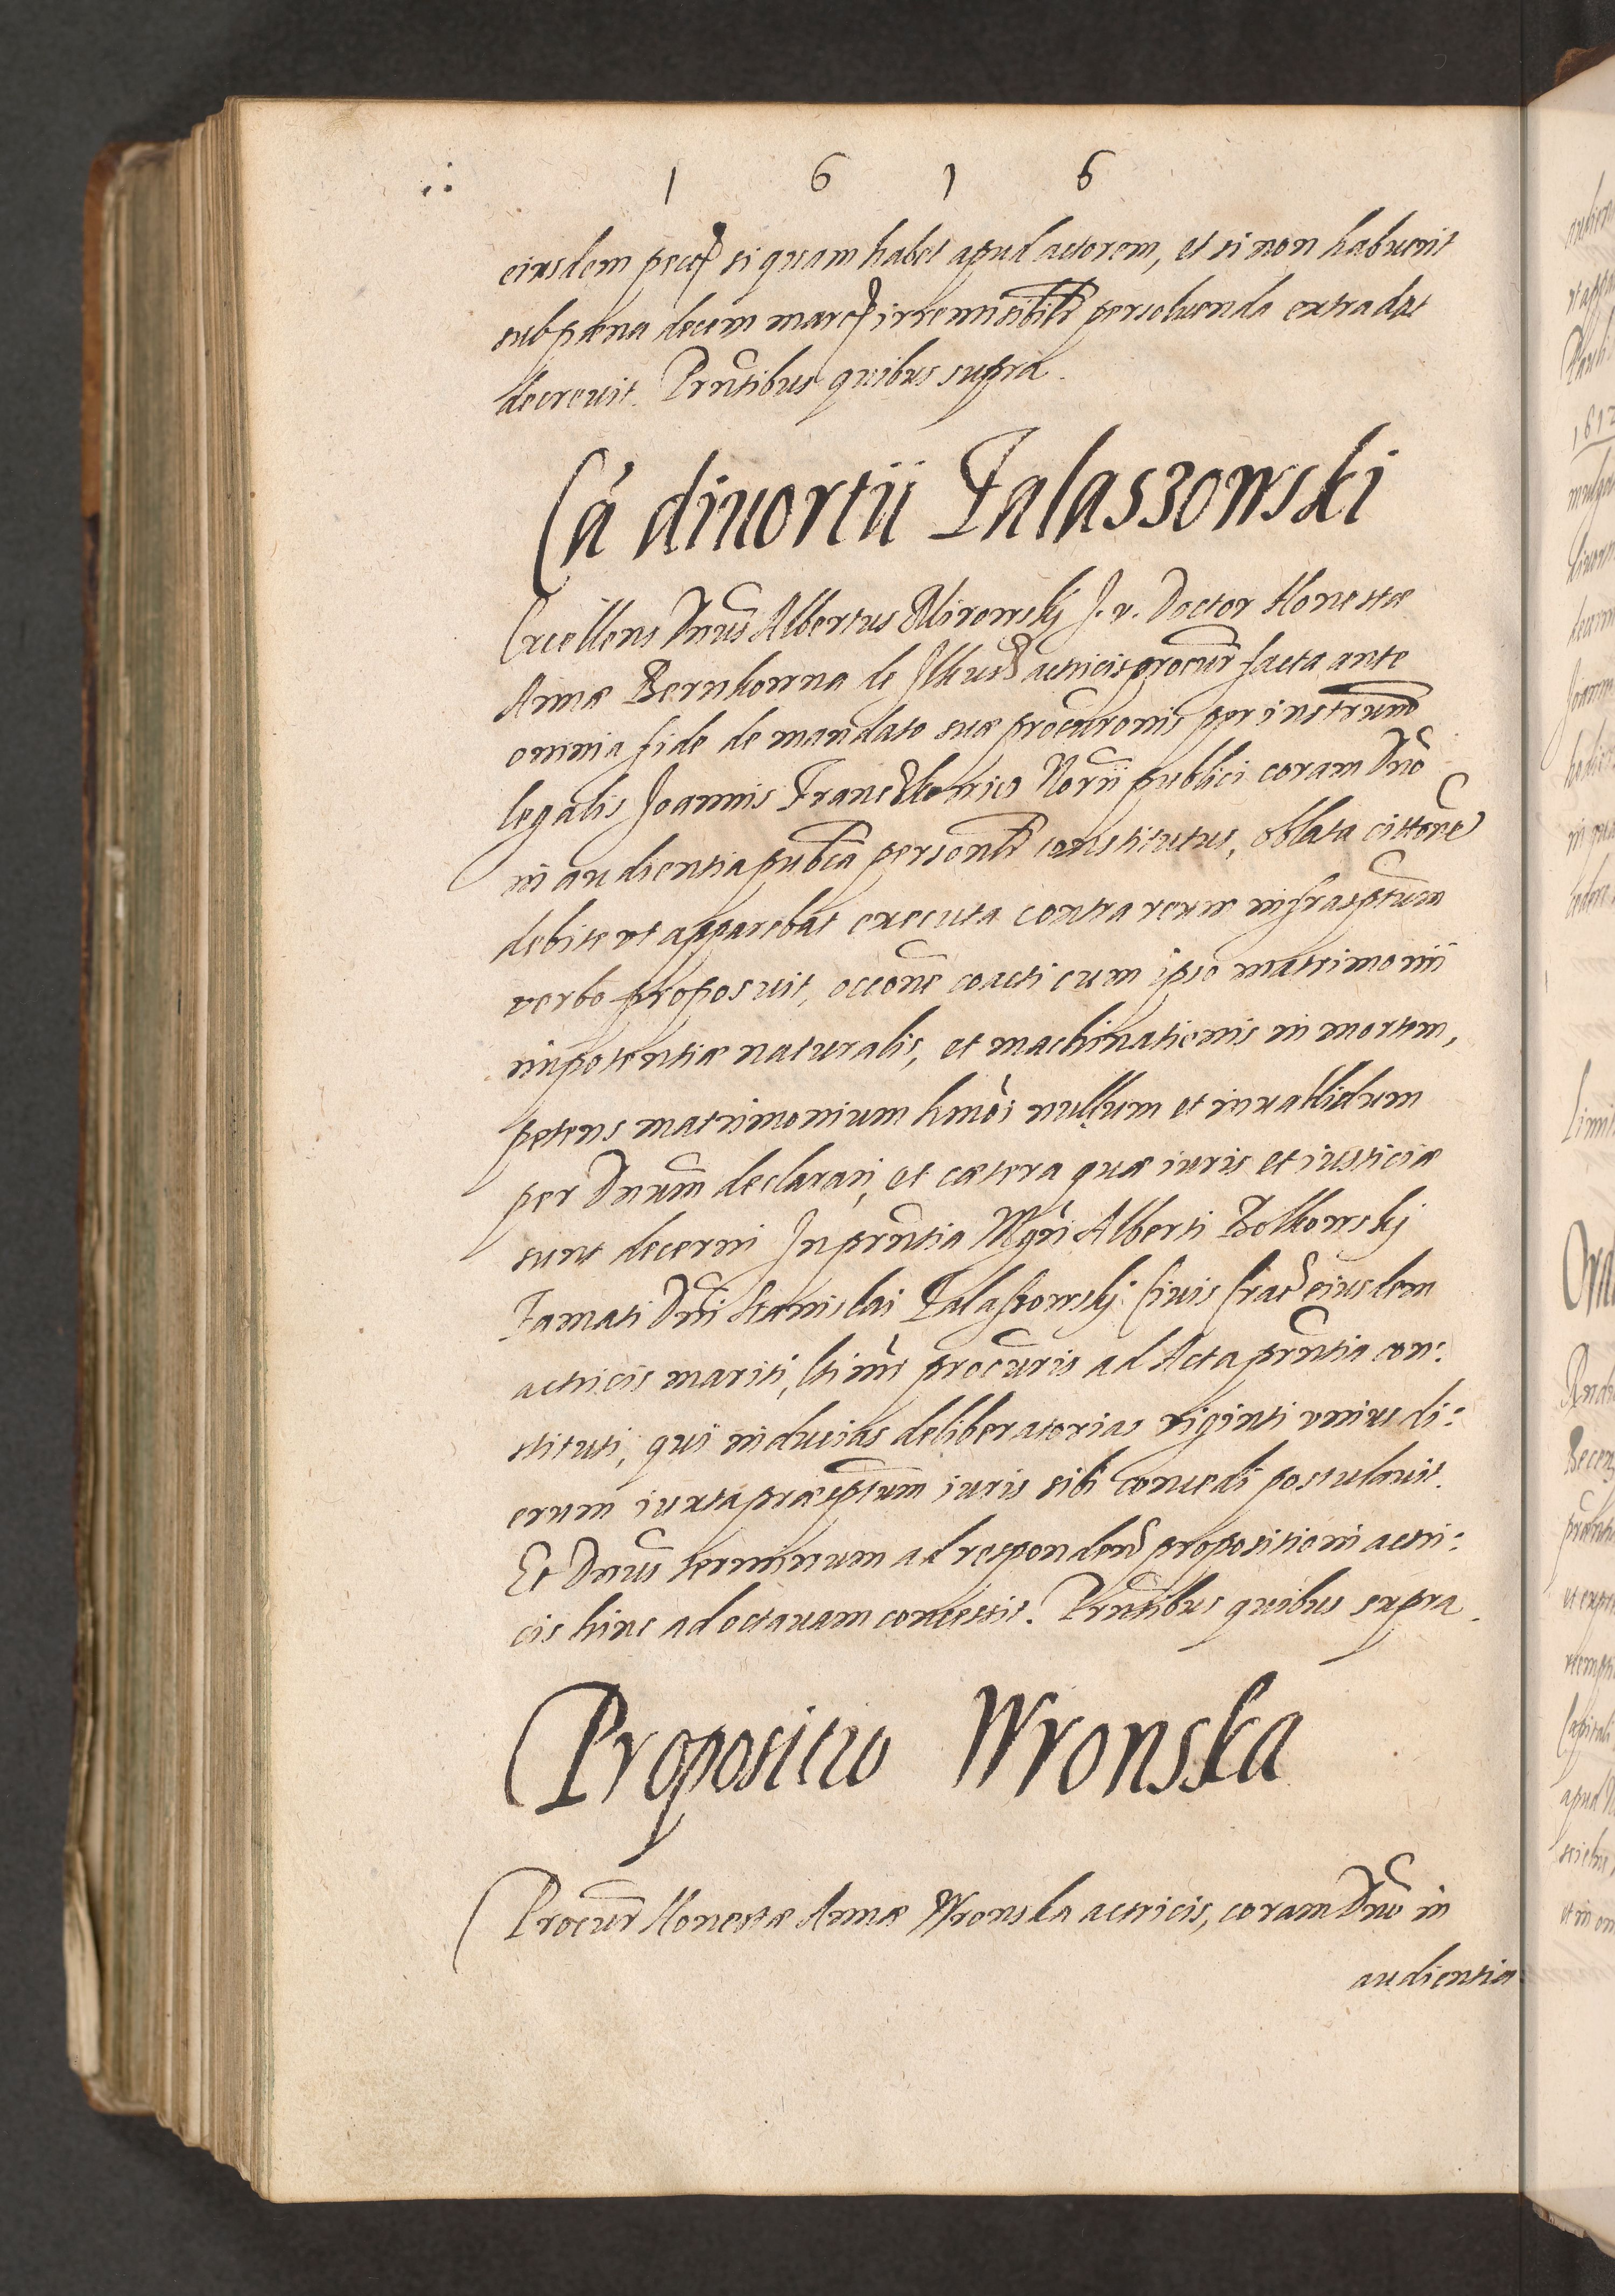 1 6 1 6
eiusdem si quam habet apud actorem, et si non habuerit
sub pœna decem marc irremisibilr persoluenda extradat
decreuit. Prntibus quibus supra.
Cà diuortii Falaszowski
Excellens Dnus Albertus Mirowskj J. v. Doctor Honestæ
Annæ Bernkowna de Ilkus actricis procur facta ante
omnia fide de mandato suæ procuronis per instrum
legalis Joannis Franc Norii publici coram Dno
in audientia pubca personlr constitutus, oblata cittone
debite vt apparebat executa contra reum infrasptum
verbo proposuit, occone coacti cum ipso matrimonii
impotentiæ naturalis, et machinationis in mortem,
petens matrimonium hmoi nullum et inuallidum
per Dnum declarari, et cætera quæ iuris et iusticiæ
sunt decerni In prntia Mgri Alberti Bolkowskj
Famati Dni Stanislai Falaszowskj Ciuis Crac eiusdem
actricis mariti, ltimi procuris ad Acta prntia con:
stituti, qui inducias deliberatorias viginti vnius di:
erum iuxta præsptum iuris sibi concedi postulauit.
Et Dnus terminum ad responden propositioni actri:
cis hinc ad octauam concessit. Prntibus quibus supra.
Propositio Wronska
Procur Honestæ Annæ Wronska actricis, coram Dno in
audientia